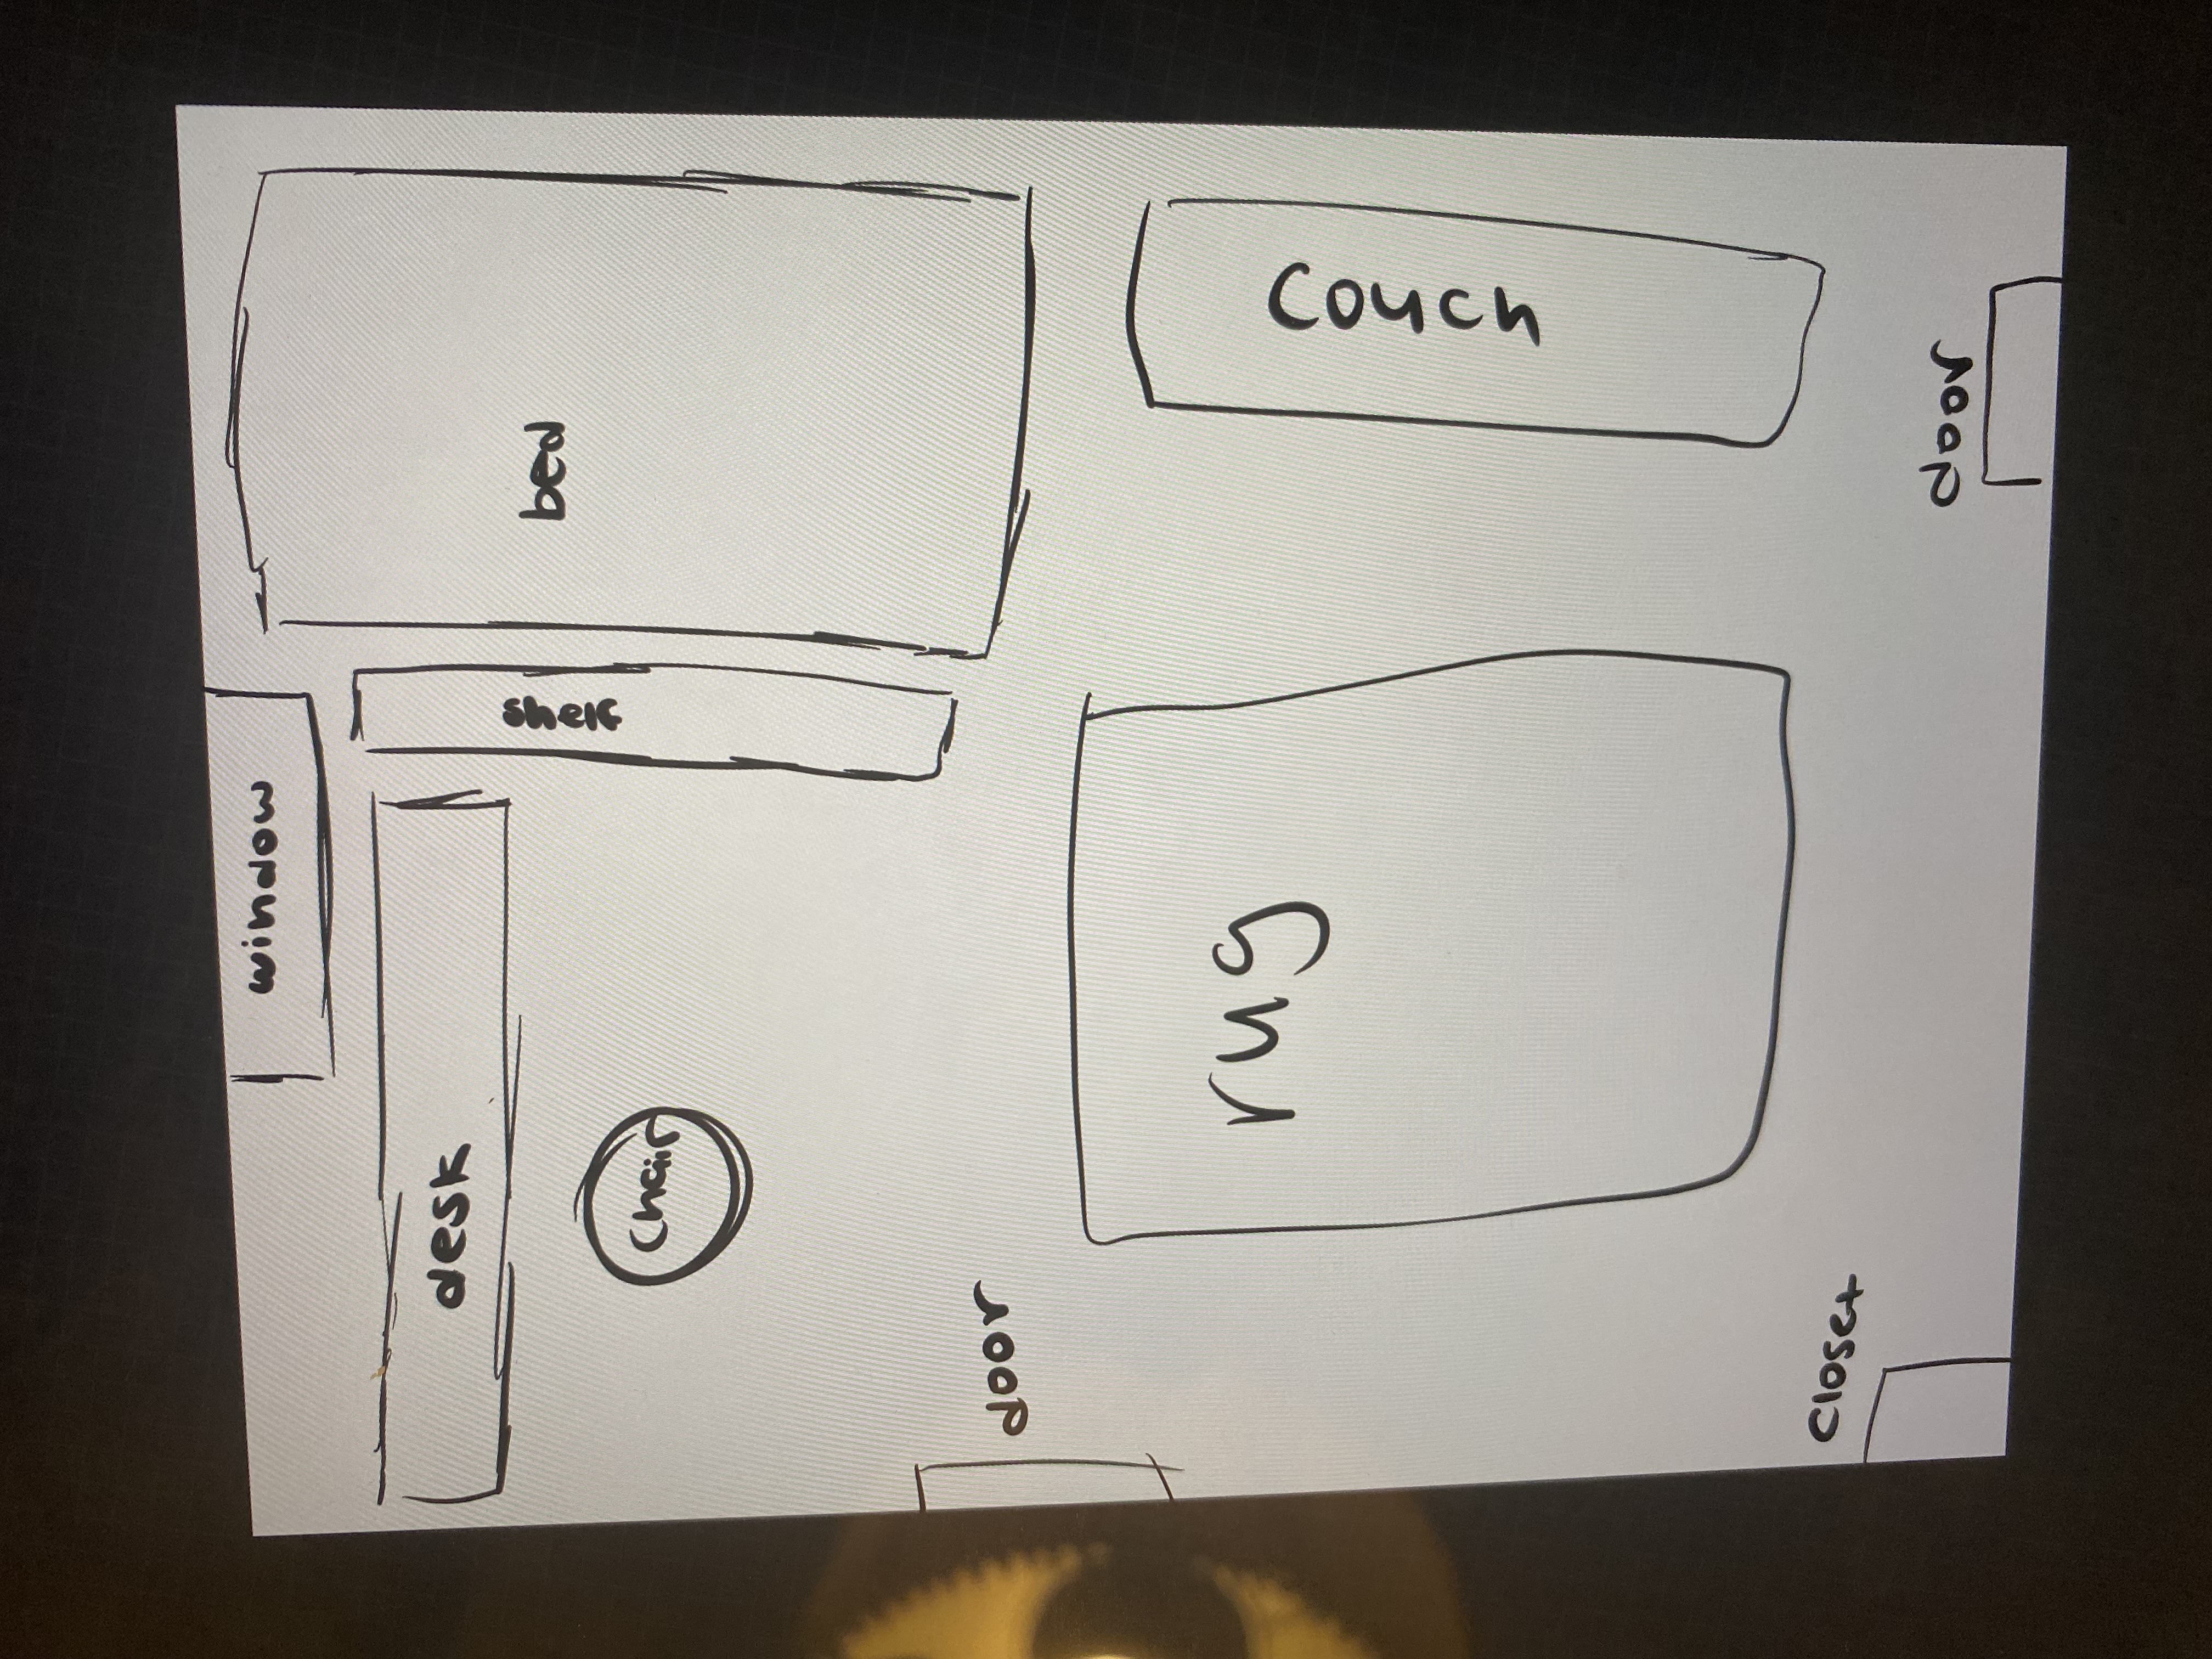 window
desk
shelf
bed
chair
door
rug
couch
closet
door